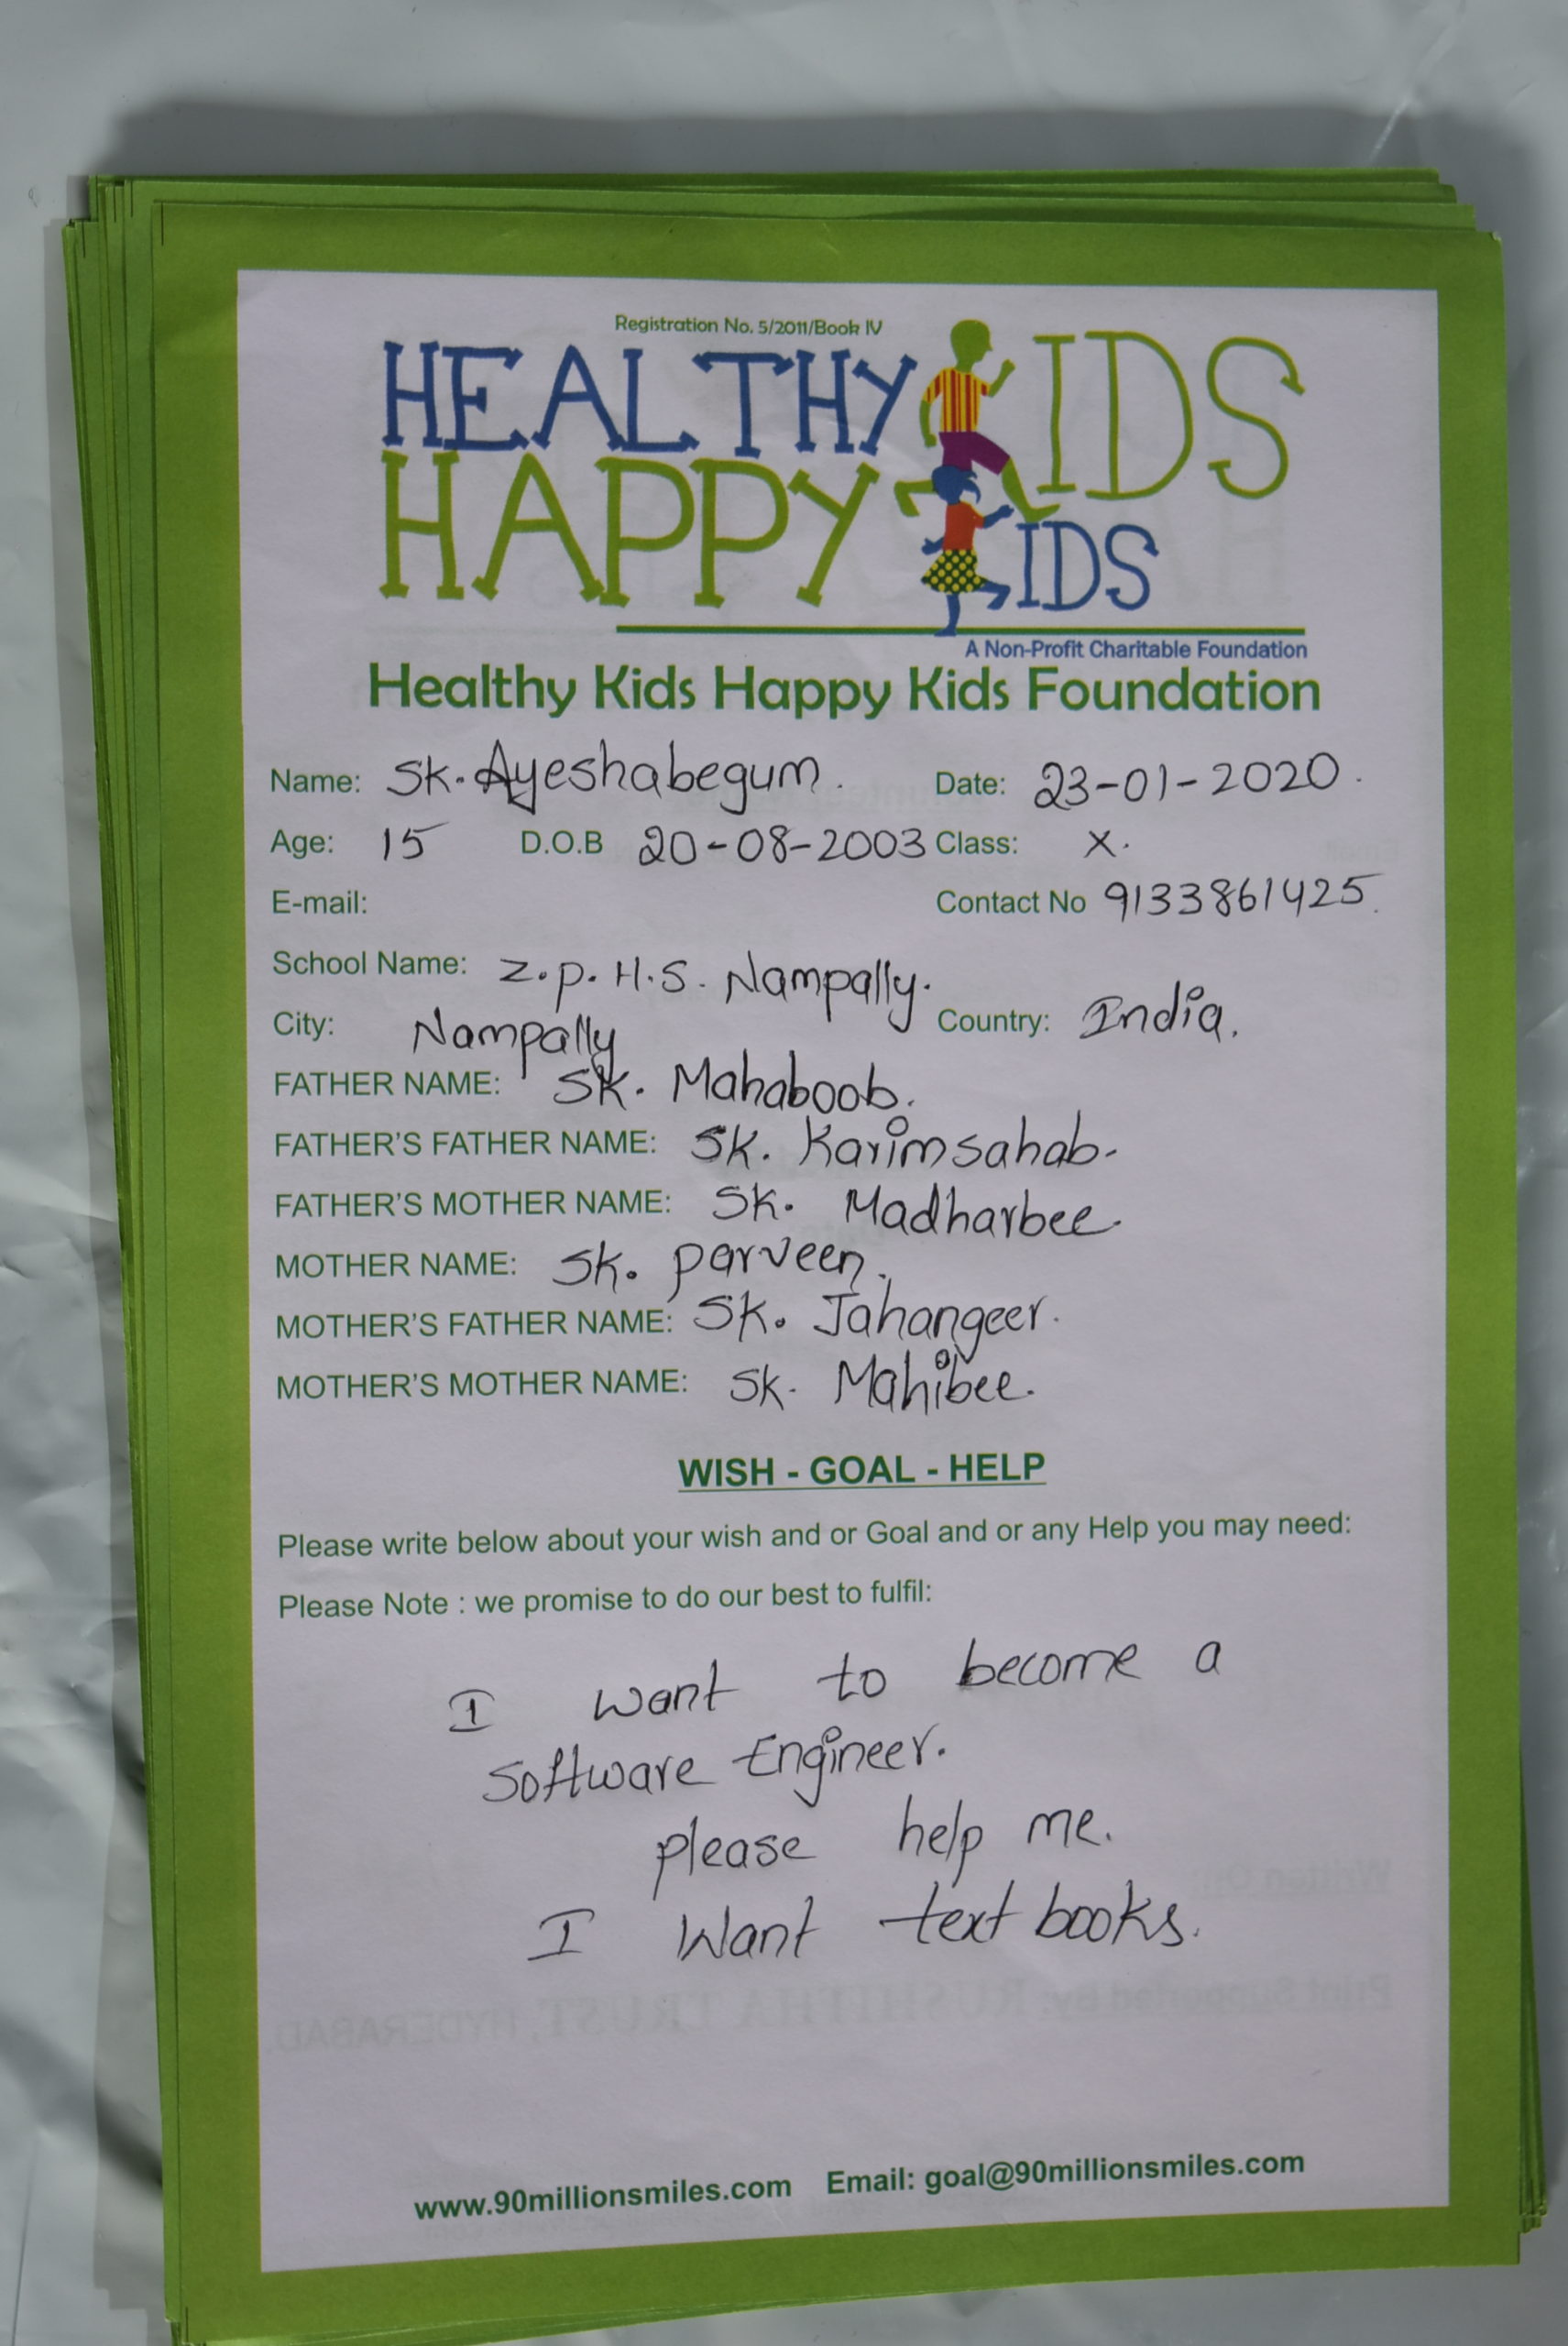 Registration No. 5/2011/Book IV
HEALTHY KIDS
HAPPY KIDS
A Non-Profit Charitable Foundation
Healthy Kids Happy Kids Foundation
Name: Sk. Ayeshabegum. Date: 23-01-2020.
Age: 15 D.O.B 20-08-2003 Class: X.
E-mail: Contact No 9133861425.
School Name: Z.p. H.S. Nampally.
City: Nampally Country: India.
FATHER NAME: Sk. Mahaboob.
FATHER'S FATHER NAME: Sk. Karimsahab.
FATHER'S MOTHER NAME: Sk. Madharbee.
MOTHER NAME: Sk. parveen.
MOTHER'S FATHER NAME: Sk. Jahangeer.
MOTHER'S MOTHER NAME: Sk. Mahibee.
WISH - GOAL - HELP
Please write below about your wish and or Goal and or any Help you may need:
Please Note : we promise to do our best to fulfil:
I want to become a
Software Engineer.
please help me.
I Want text books.
www.90millionsmiles.com Email: goal@90millionsmiles.com